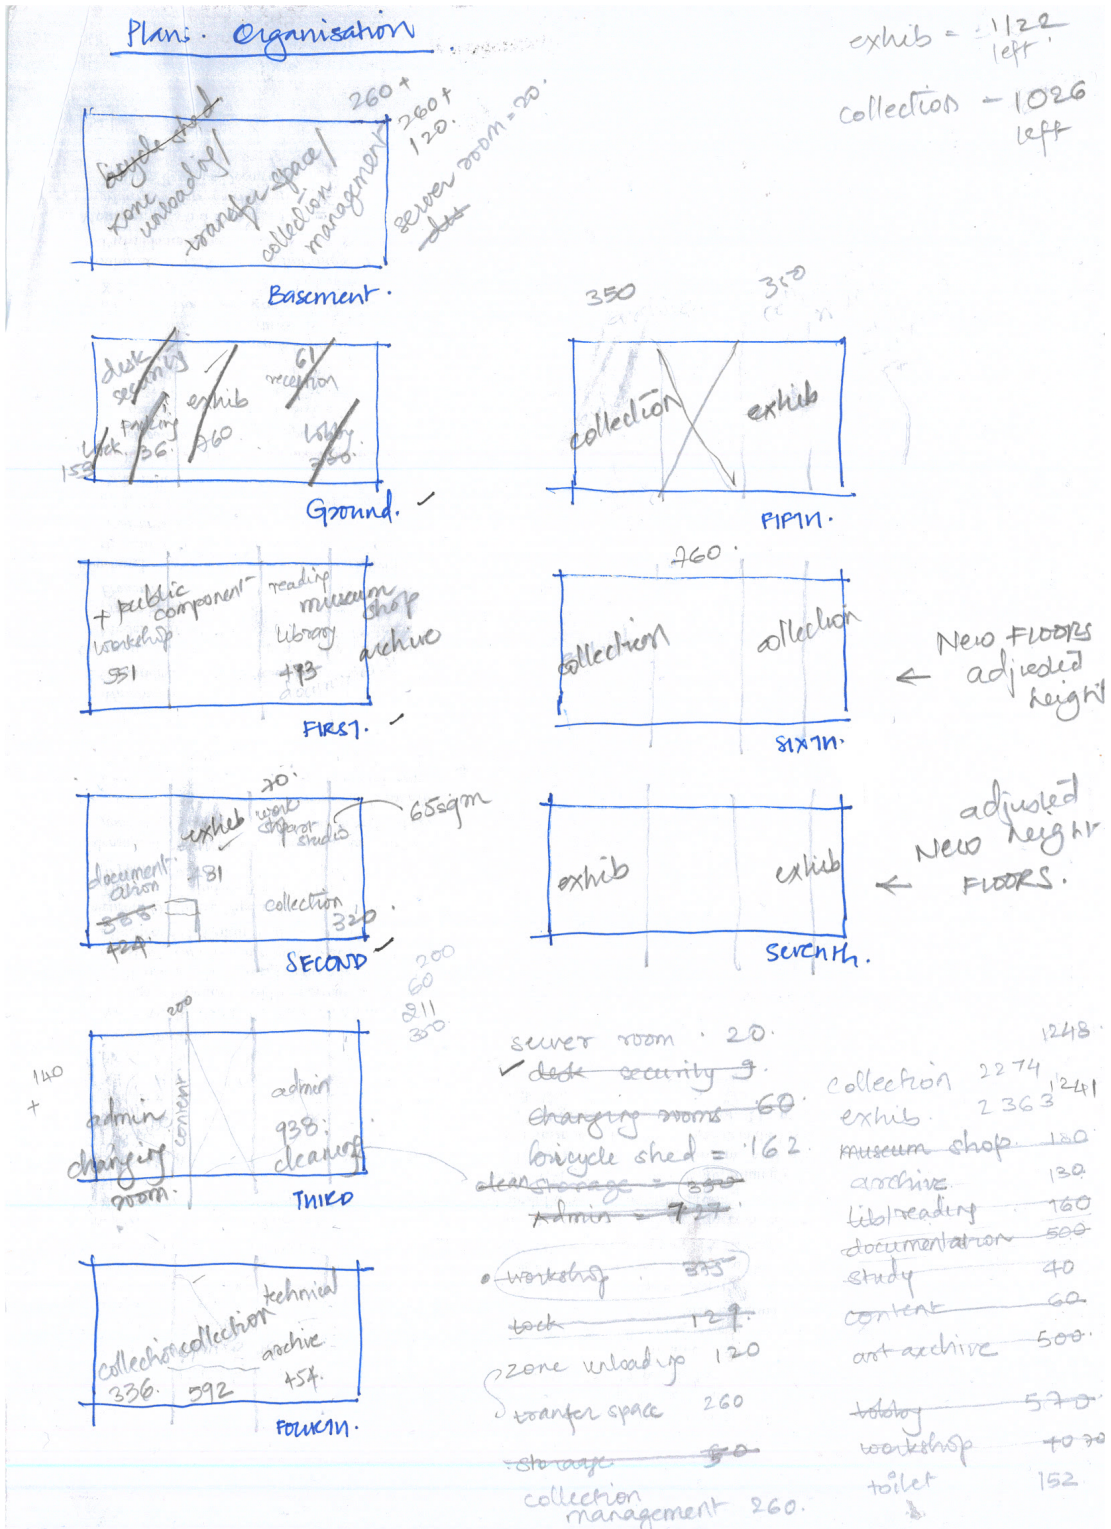 Plans. Organisation
exhib = 1122
left.
collection - 1026
left
260 +
260 +
120.
server room = 20.
bicycle shed
zone
unloading/
transfer space/
collection
management
Basement.
desk
security
parking
36.
lock
153
exhib
760
61
reception
lobby
Ground.
350
350
collection
exhib
FIFTH.
+ public
component
workshop
551
reading
museum
shop
library
archive
473
FIRST.
760.
collection
collection
SIXTH.
← New FLOORS
adjusted
height
70.
exhib
481
work
shop art
studio
65sqm
document
ation
424
collection
320
SECOND
exhib
exhib
Seventh.
adjusted
New height
← FLOORS.
200
60
211
350
200
140
+
admin
changing
room.
content
admin
938.
cleaning
THIRD
collection
336.
collection
592
technical
archive
454.
FOURTH.
server room . 20.
desk security 9.
changing rooms 60.
bicycle shed = 162.
clean storage = 350
Admin = 727
workshop 375
lock 129.
zone unloading 120
tranfer space 260
storage 50
collection
management 260.
1248
collection 2274
1241
exhib. 2363
museum shop. 180
archive 130
lib/reading 160
documentation 500
study 40
content 60
art archive 500.
lobby 570
workshop 70
toilet 152